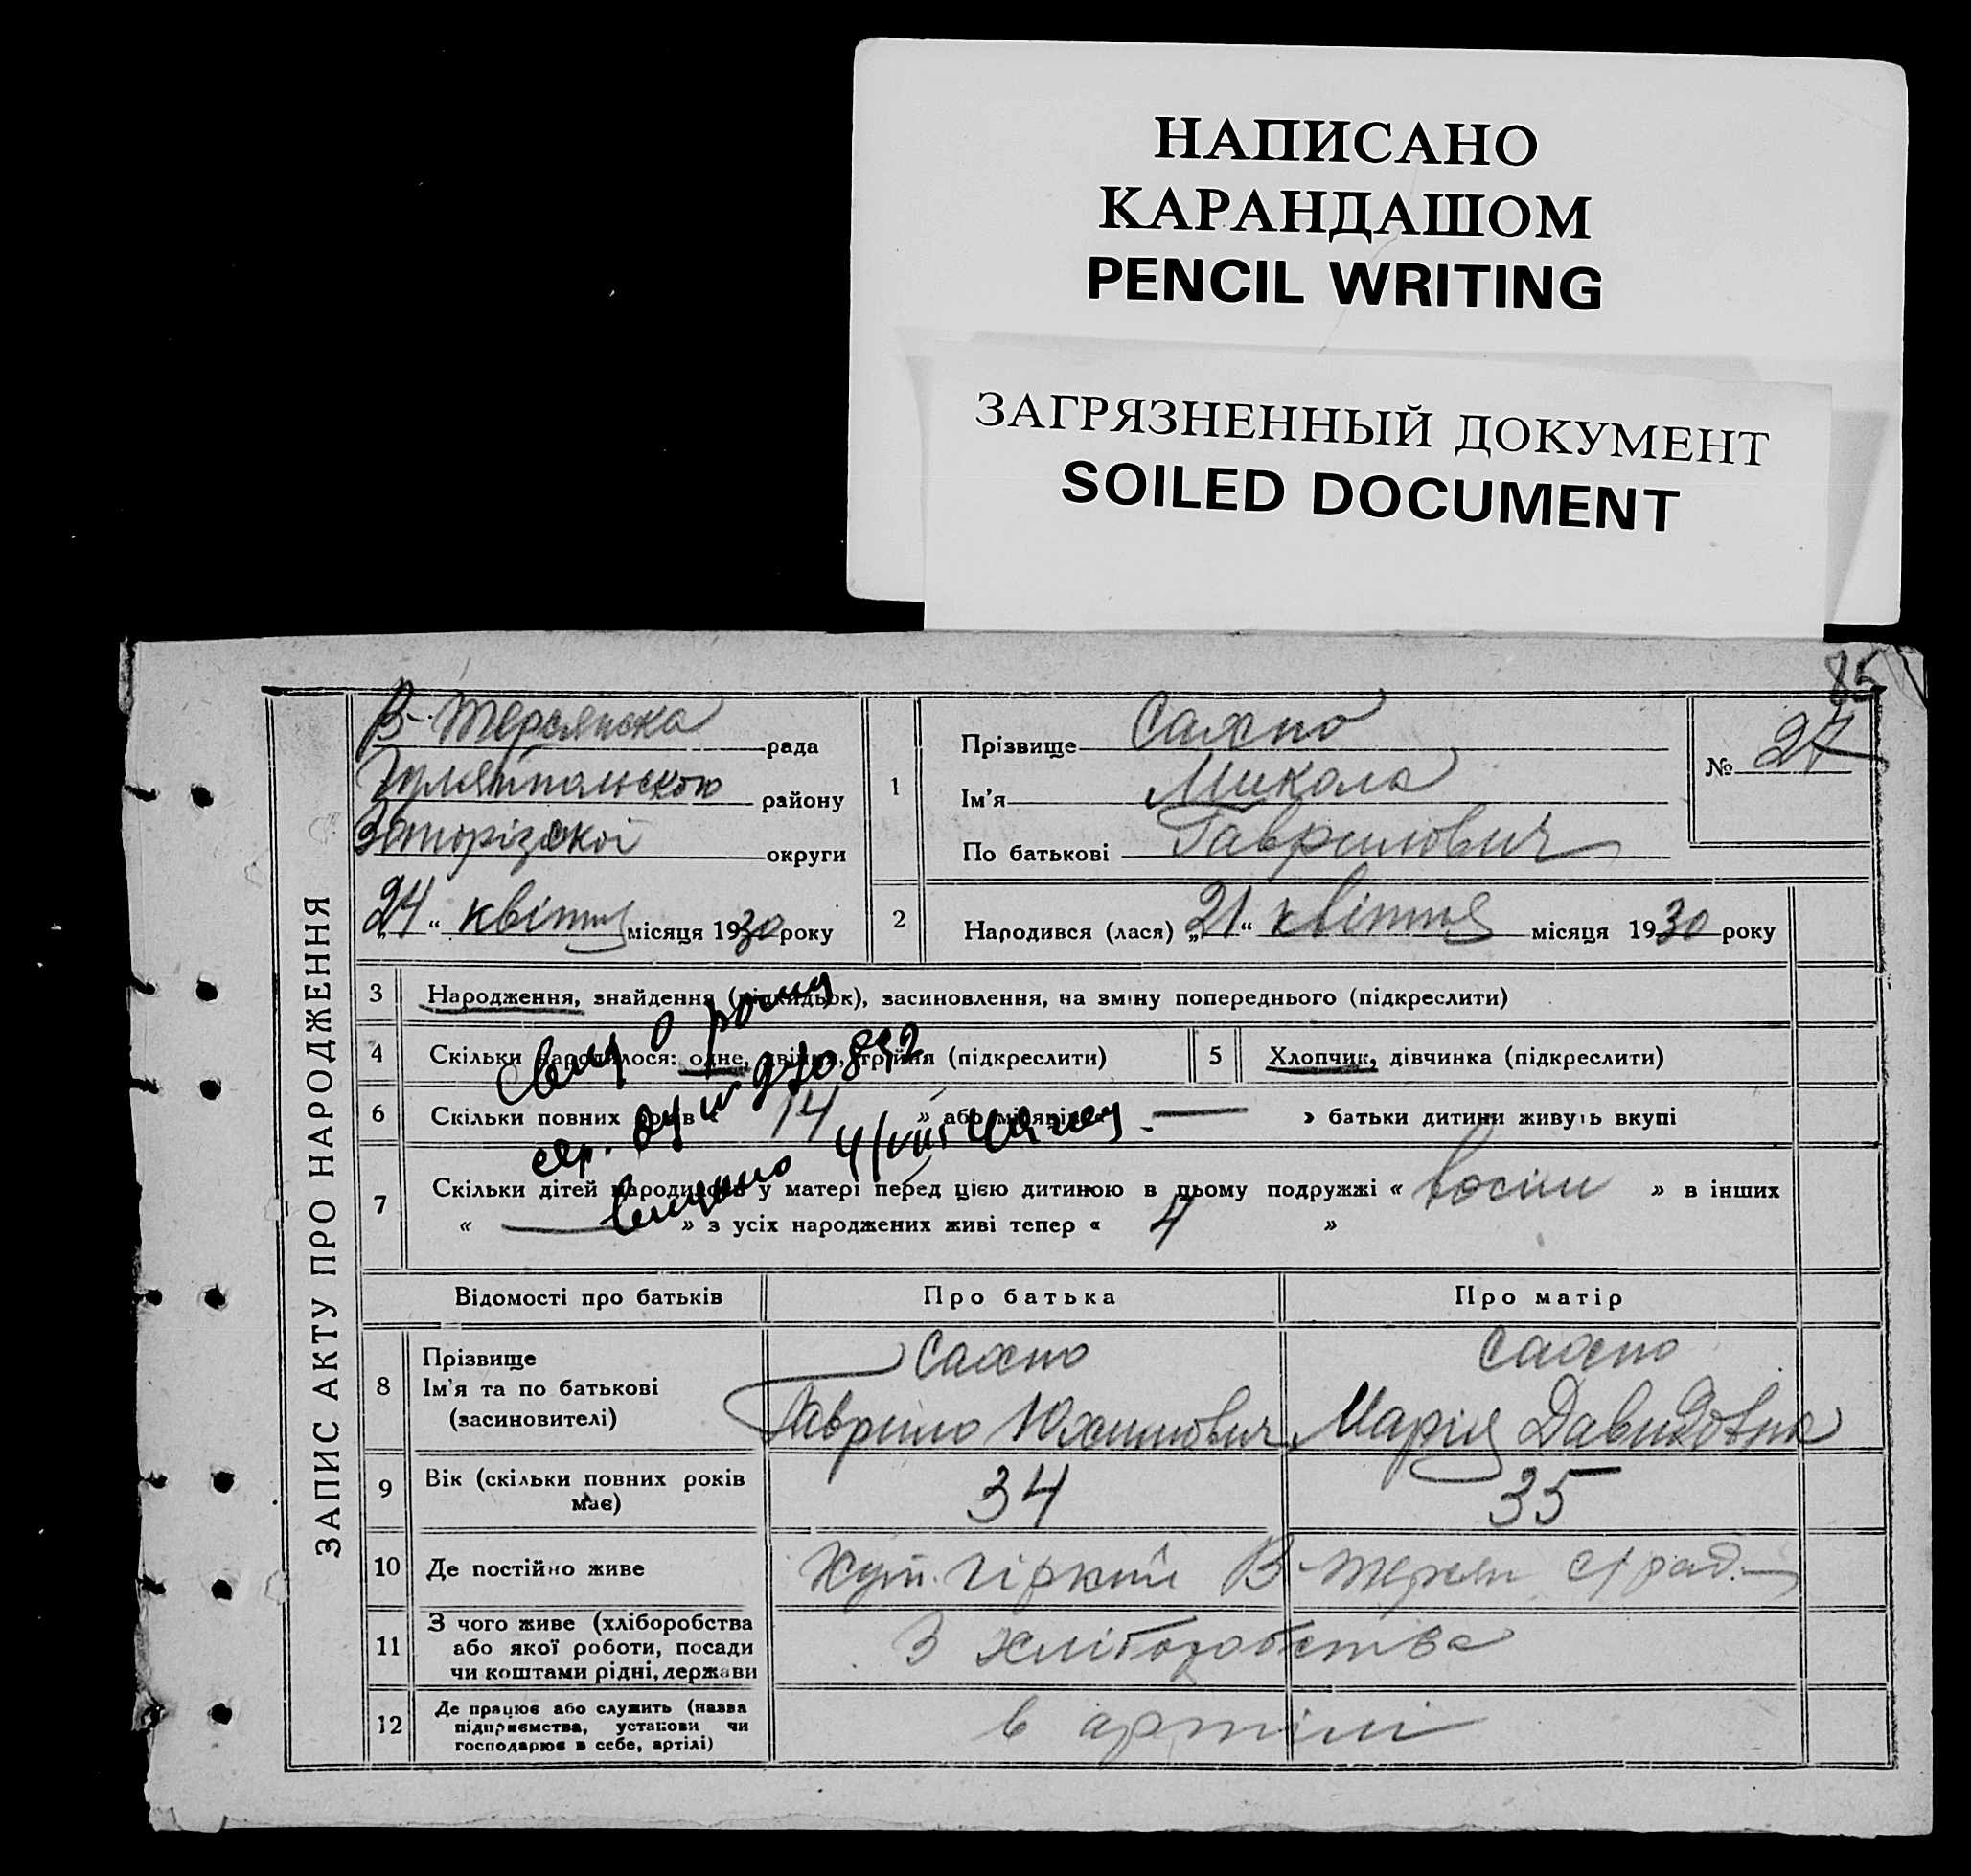 НАПИСАНО
КАРАНДАШОМ
PENCIL WRITING
ЗАГРЯЗНЕННЫЙ ДОКУМЕНТ
SOILED DOCUMENT
85
ЗАПИС АКТУ ПРО НАРОДЖЕННЯ
В-Терсянска рада
Гуляйпольского району
Запорізской округи
„24“ квітня місяця 1930 року
1
Прізвище Сахно
Ім'я Микола
По батькові Гаврилович
№ 27
2 Народився (лася) „21“ квітня місяця 1930 року
3 Народження, знайдення (підкидьок), засиновлення, на зміну попереднього (підкреслити)
4 Скільки народилося: одне, двійня, трійня (підкреслити)
5 Хлопчик, дівчинка (підкреслити)
6 Скільки повних років « 14 » або місяців « — » батьки дитини живуть вкупі
7 Скільки дітей народилось у матері перед цією дитиною в цьому подружжі « восім » в інших
« — » з усіх народжених живі тепер « 4 »
970892
Відомості про батьків Про батька Про матір
8 Прізвище Сахно Сахно
Ім'я та по батькові Гаврило Юхимович Марія Давидовна
(засиновителі)
9 Вік (скільки повних років має) 34 35
10 Де постійно живе Хут. Гіркий В-Терсян с/рад.
11 З чого живе (хліборобства або якої роботи, посади чи коштами рідні, держави З хліборобства
12 Де працює або служить (назва підприємства, установи чи господарює в себе, артілі) в артілі